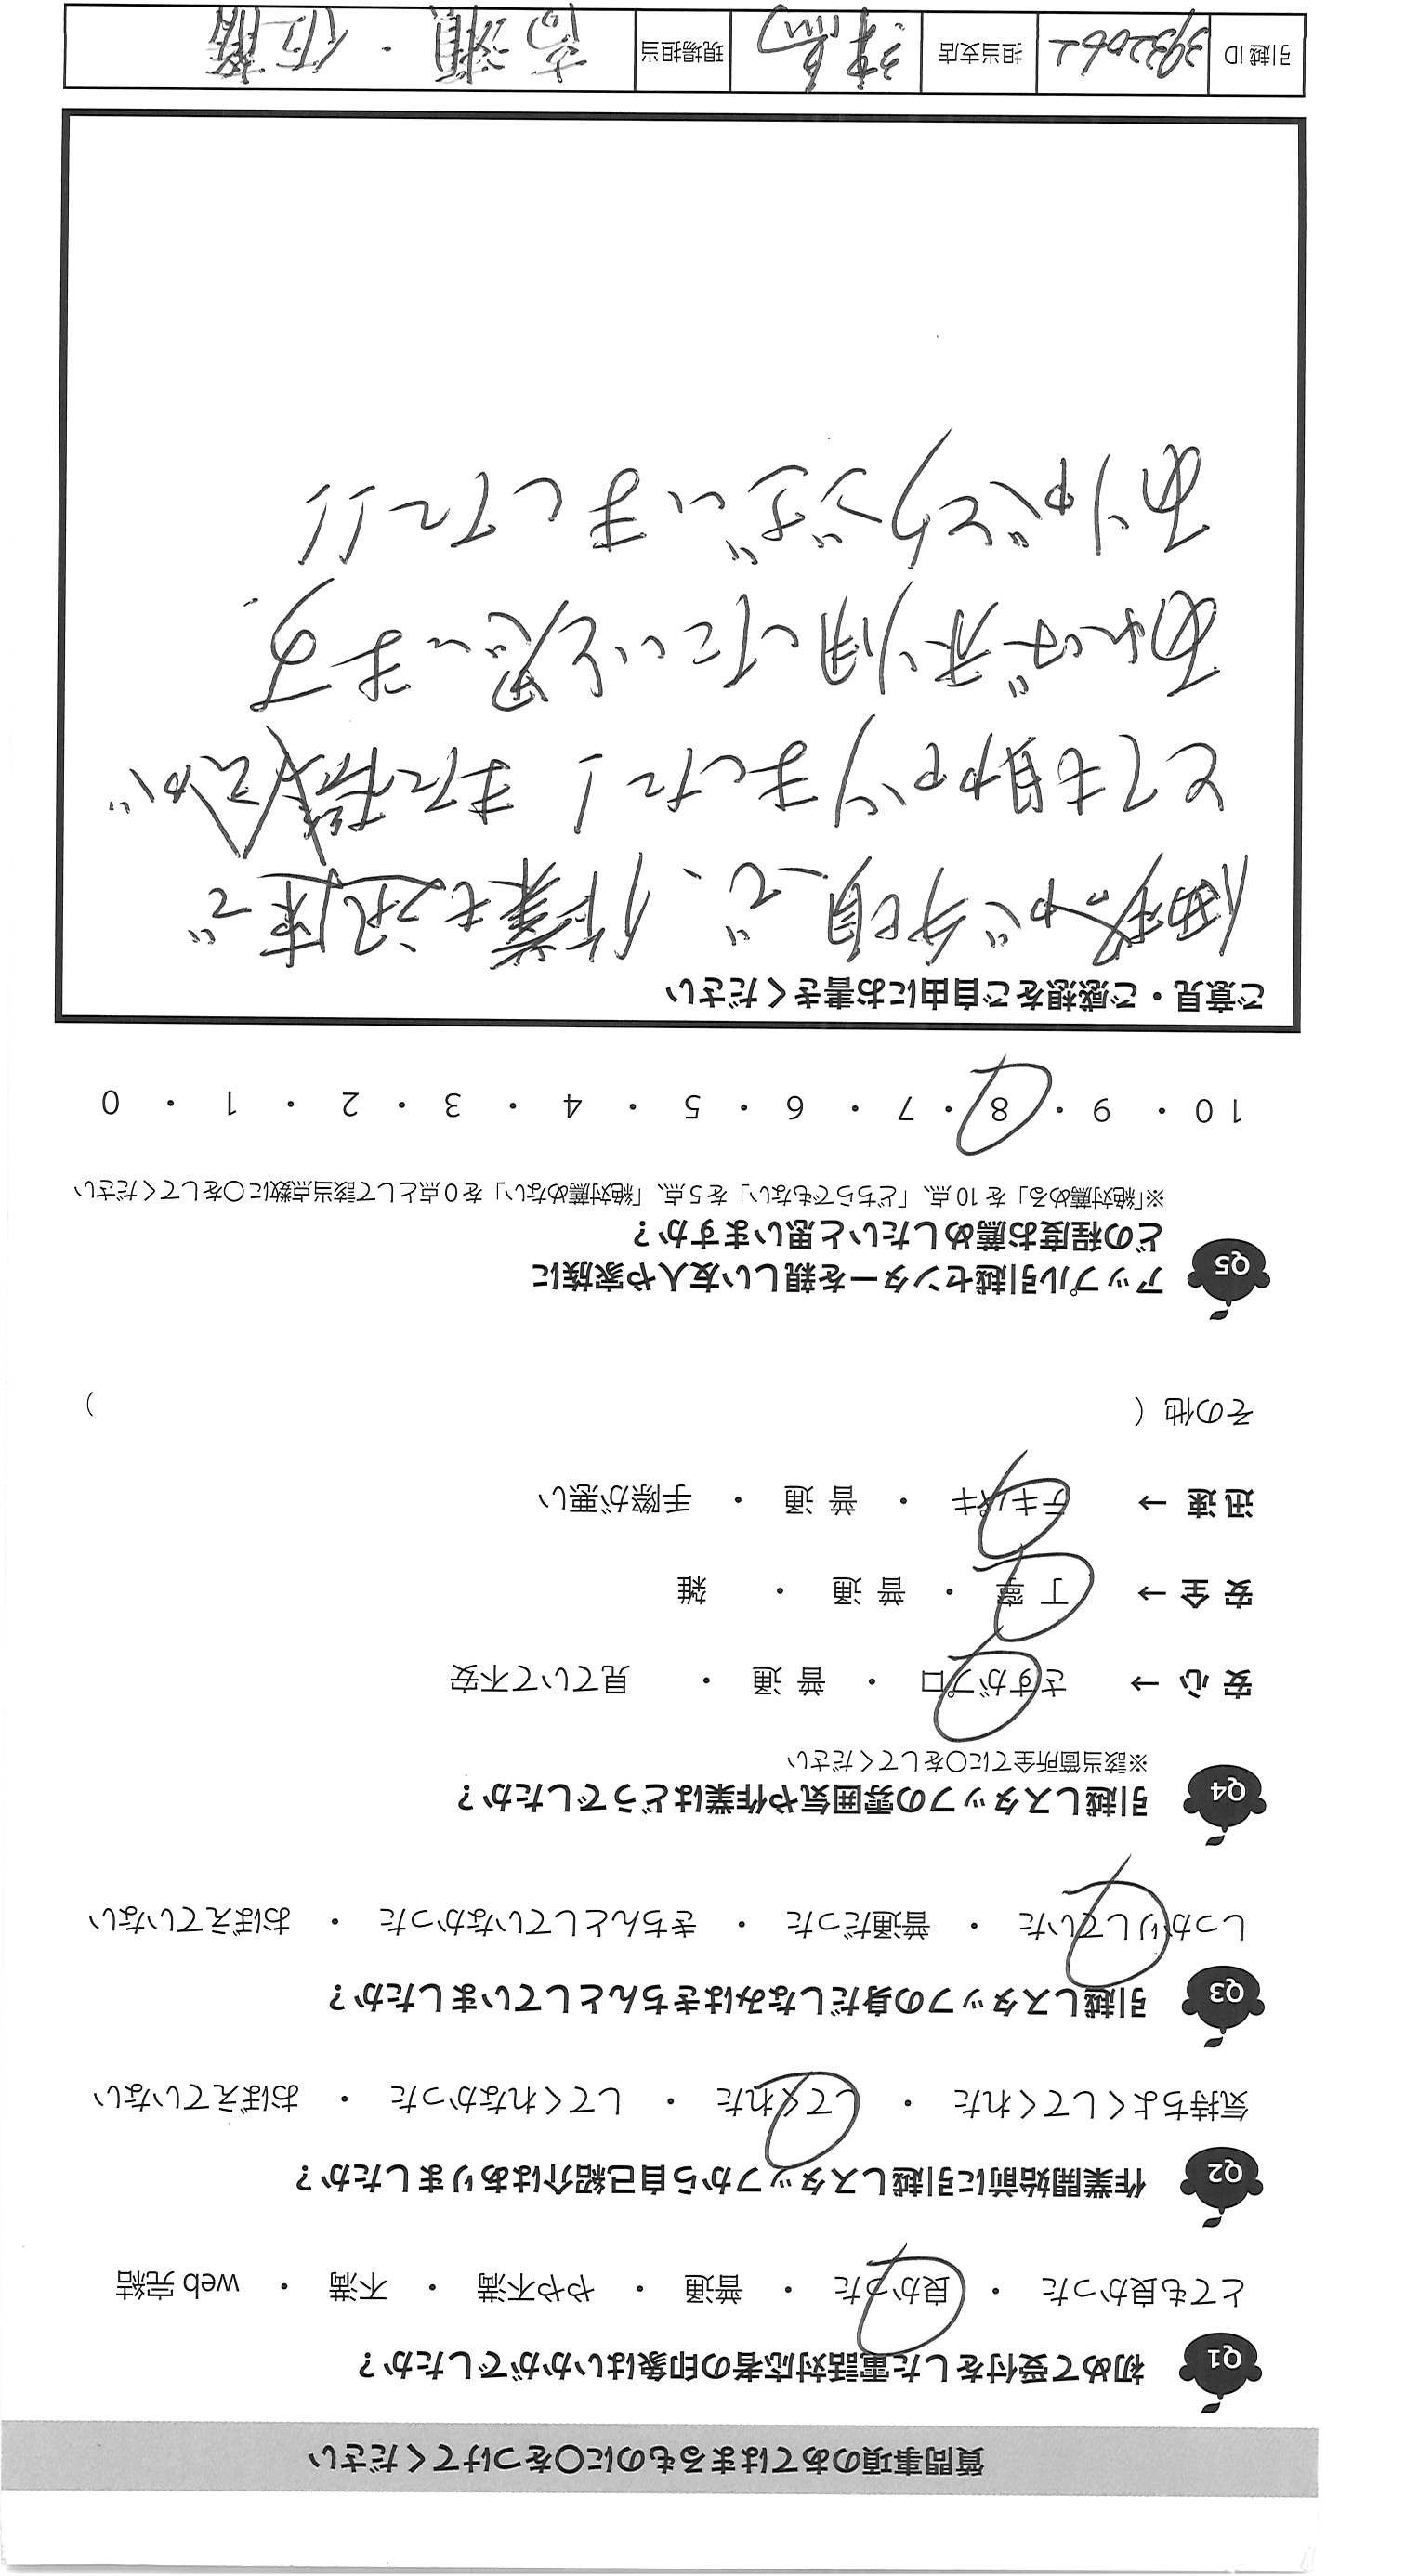 質問事項のあてはまるものに〇をつけてください
Q1 初めて受付をした電話対応者の印象はいかがでしたか？
とても良かった ・ 良かった ・ 普通 ・ やや不満 ・ 不満 ・ web 完結
Q2 作業開始前に引越しスタッフから自己紹介はありましたか？
気持ちよくしてくれた ・ してくれた ・ してくれなかった ・ おぼえていない
Q3 引越しスタッフの身だしなみはきちんとしていましたか？
しっかりしていた ・ 普通だった ・ きちんとしていなかった ・ おぼえていない
Q4 引越しスタッフの雰囲気や作業はどうでしたか？
※該当箇所全てに〇をしてください
安 心 → さすがプロ ・ 普 通 ・ 見ていて不安
安 全 → 丁 寧 ・ 普 通 ・ 雑
迅 速 → テキパキ ・ 普 通 ・ 手際が悪い
その他（ ）
Q5 アップル引越センターを親しい友人や家族に
どの程度お薦めしたいと思いますか？
※「絶対薦める」を 10 点、「どちらでもない」を 5 点、「絶対薦めない」を 0 点として該当点数に〇をしてください
10 ・ 9 ・ 8 ・ 7 ・ 6 ・ 5 ・ 4 ・ 3 ・ 2 ・ 1 ・ 0
ご意見・ご感想をご自由にお書きください
値段が手頃で、作業も迅速で
とても助かりました！また機会が
あれば利用したいと思います。
ありがとうございました!!
引越 ID 3932062 担当支店 練馬 現場担当 高瀬・佐藤